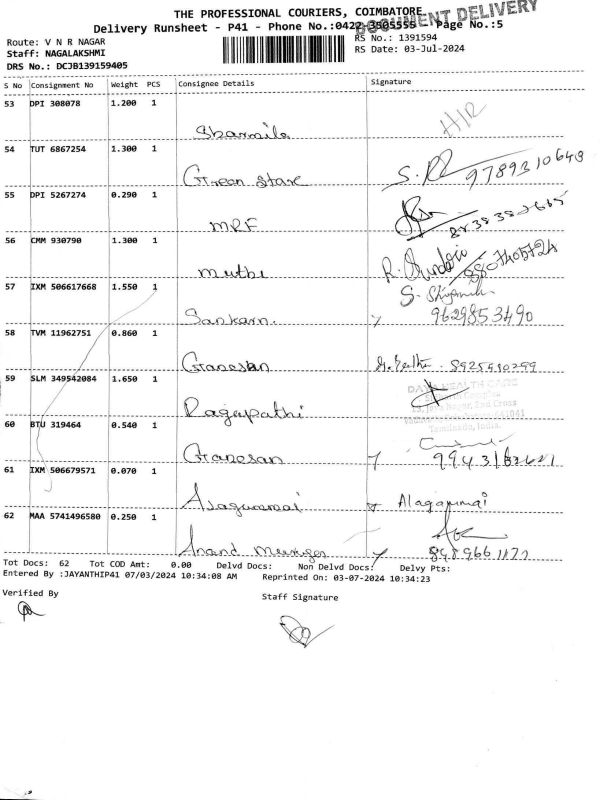 THE PROFESSIONAL COURIERS, COIMBATORE
DOCUMENT DELIVERY
Delivery Runsheet - P41 - Phone No.:0422-3505555 Page No.:5
Route: V N R NAGAR
RS No.: 1391594
Staff: NAGALAKSHMI
RS Date: 03-Jul-2024
DRS No.: DCJB139159405
S No Consignment No Weight PCS Consignee Details Signature
53 DPI 308078 1.200 1
Sharmila H/R
54 TUT 6867254 1.300 1
Green Stare 9789310643
55 DPI 5267274 0.290 1
MRF
56 CMM 930790 1.300 1
Muthu
57 IXM 506617668 1.550 1
Sankari 9629853490
58 TVM 11962751 0.860 1
Ganesan
59 SLM 349542084 1.650 1
Ragupathi
60 BTU 319464 0.540 1
Ganesan
61 IXM 506679571 0.070 1
Alagammai Alagammai
62 MAA 5741496580 0.250 1
Anand Murugan
Tot Docs: 62 Tot COD Amt: 0.00 Delvd Docs: Non Delvd Docs: Delvy Pts:
Entered By :JAYANTHIP41 07/03/2024 10:34:08 AM Reprinted On: 03-07-2024 10:34:23
Verified By
Staff Signature